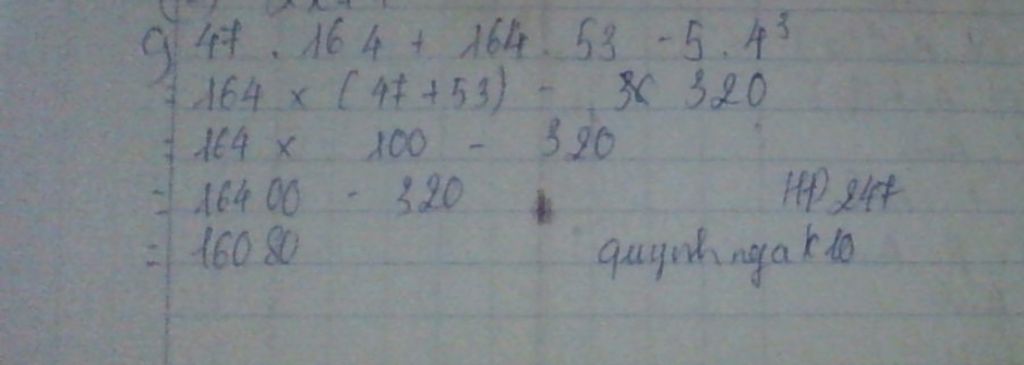 g) 47 . 164 + 164 . 53 - 5 . 4³
= 164 x ( 47 + 53 ) - 320
= 164 x 100 - 320
= 16400 - 320
= 16080
HP 247
quynh nga k10